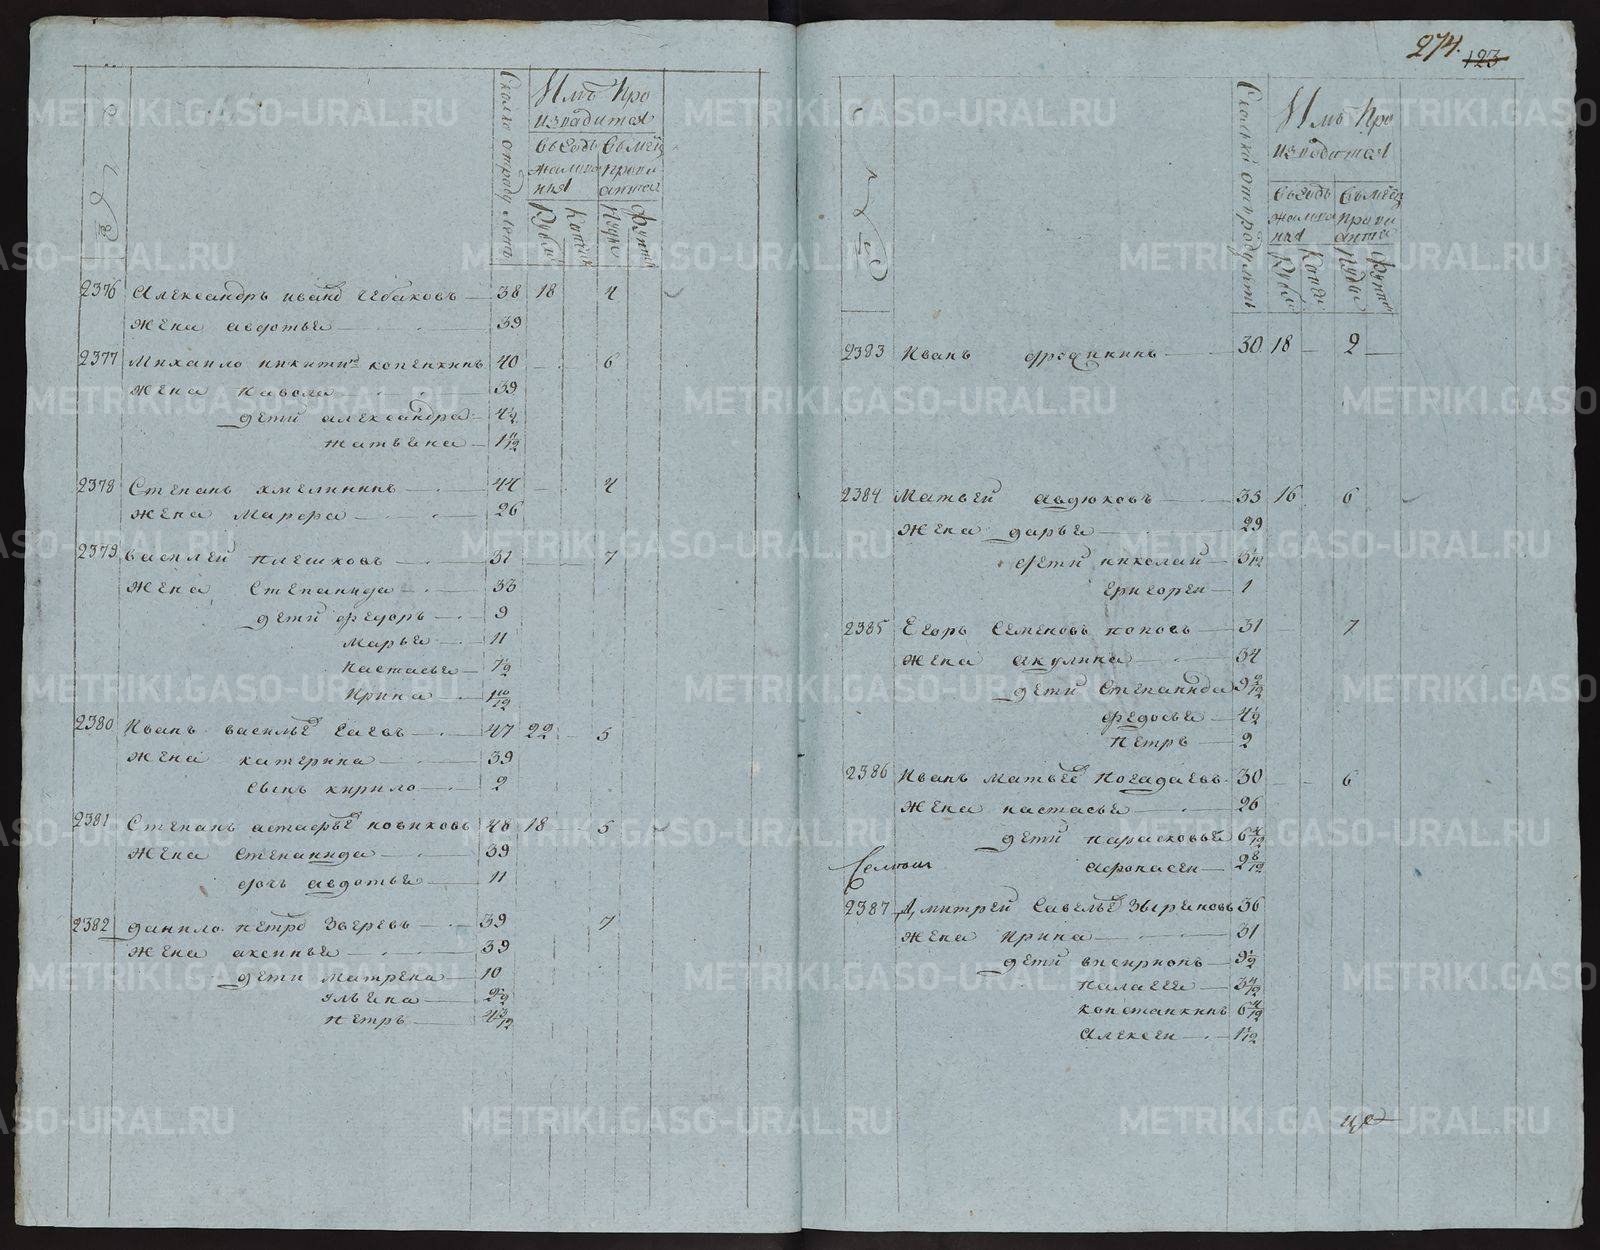 274. 123
Сколко отроду летъ
Имъ про
изводится
Въ годъ жалованья
Въ месецъ провианта
Рубли
Копеи
Пуды
Фунты
2376 Александръ иванд чебаковъ 38 18 4
жена авдотья 39
2377 Михаило никитин копенкинъ 40 6
жена павола 39
дети александра 4 1/2
татьяна 1 11/12
2378 Степанъ хмелининъ 44 4
жена Марфа 26
2379 василей плешковъ 31 7
жена Степанида 33
дети федоръ 9
марья 11
настасья 7 1/2
Ирина 1 10/12
2380 Иванъ василье гаевъ 47 22 5
жена катерина 39
сынъ кирило 2
2381 Степанъ астафье новиковъ 48 18 5
жена степанида 39
дочь авдотья 11
2382 данило петро Зверевъ 39 7
жена аксинья 39
дети матрена 10
ульяна 9 1/2
петръ 4 3/12
Сколко отъ роду летъ
Имъ про
изводится
Въ годъ жалованья
Въ месец провианта
Рубли
Копеи
Пуды
Фунты
2383 Иванъ фролкинъ 30 18 2
2384 Матвей авдюковъ 33 16 6
жена дарья 29
дети николай 3 1/12
григорей 1
2385 Егоръ Семеновъ поповъ 31 7
жена акулина 34
дети Степанида 9 8/12
федосья 4 1/2
петръ 2
2386 Иванъ матвее погадаевъ 30 6
жена настасья 26
дети парасковья 6 4/12
афонасеи 2 8/12
2387 Дмитрей Савелье Зыряновъ 36
жена Ирина 31
дети висирионъ 9 1/2
палагея 3 4/12
константинъ 6 4/12
Алексеи 1 1/2
METRIKI.GASO-URAL.RU